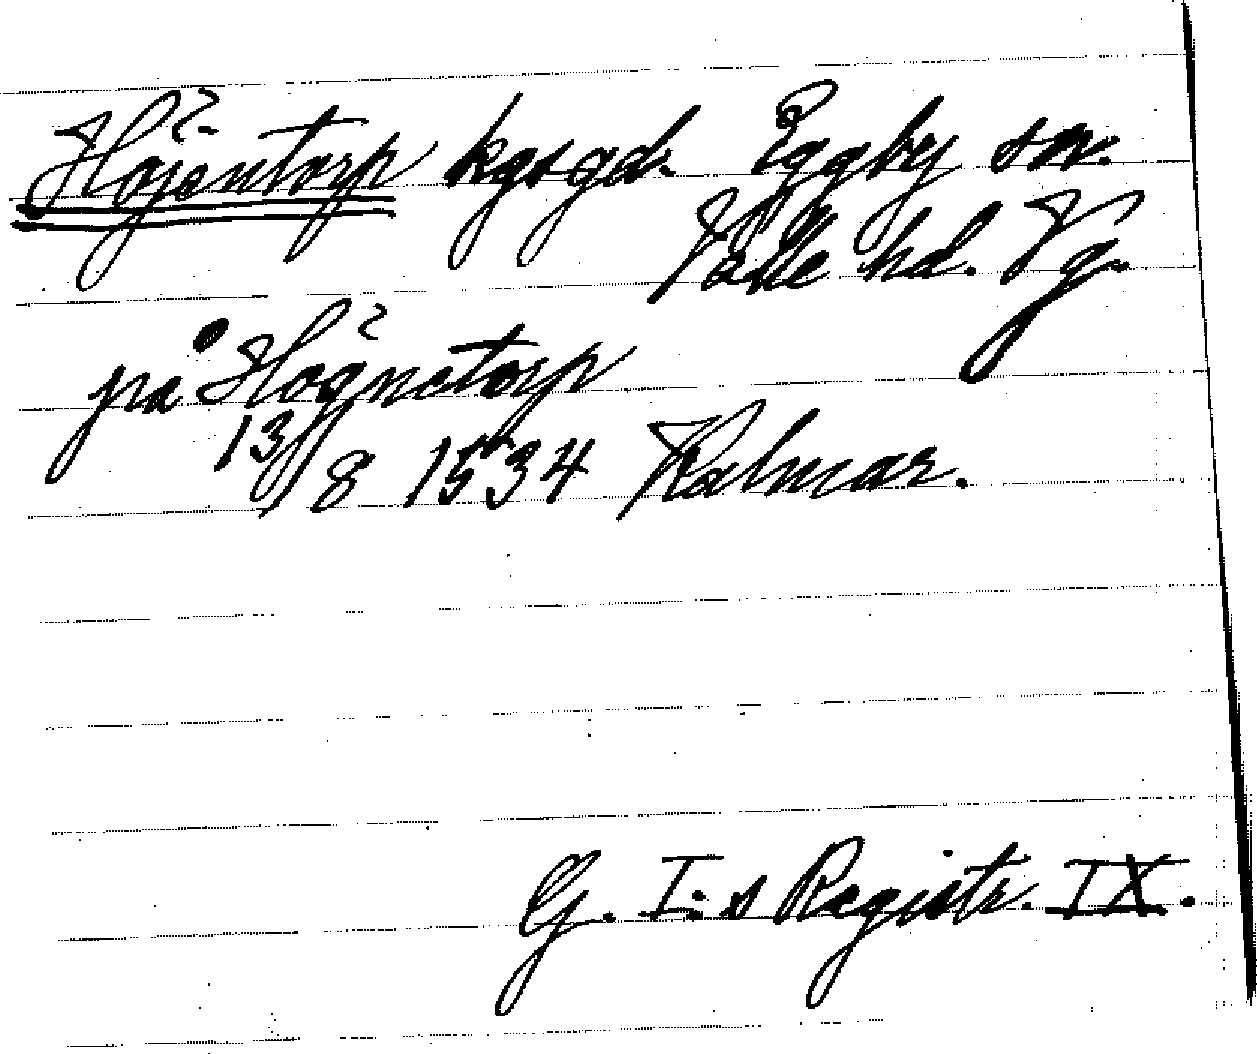 Höjentorp kgsgd. Eggby sn.
Valle hd. Vg.
på Högnetorp
13/8 1534 Kalmar.
G. I:s Registr. IX.